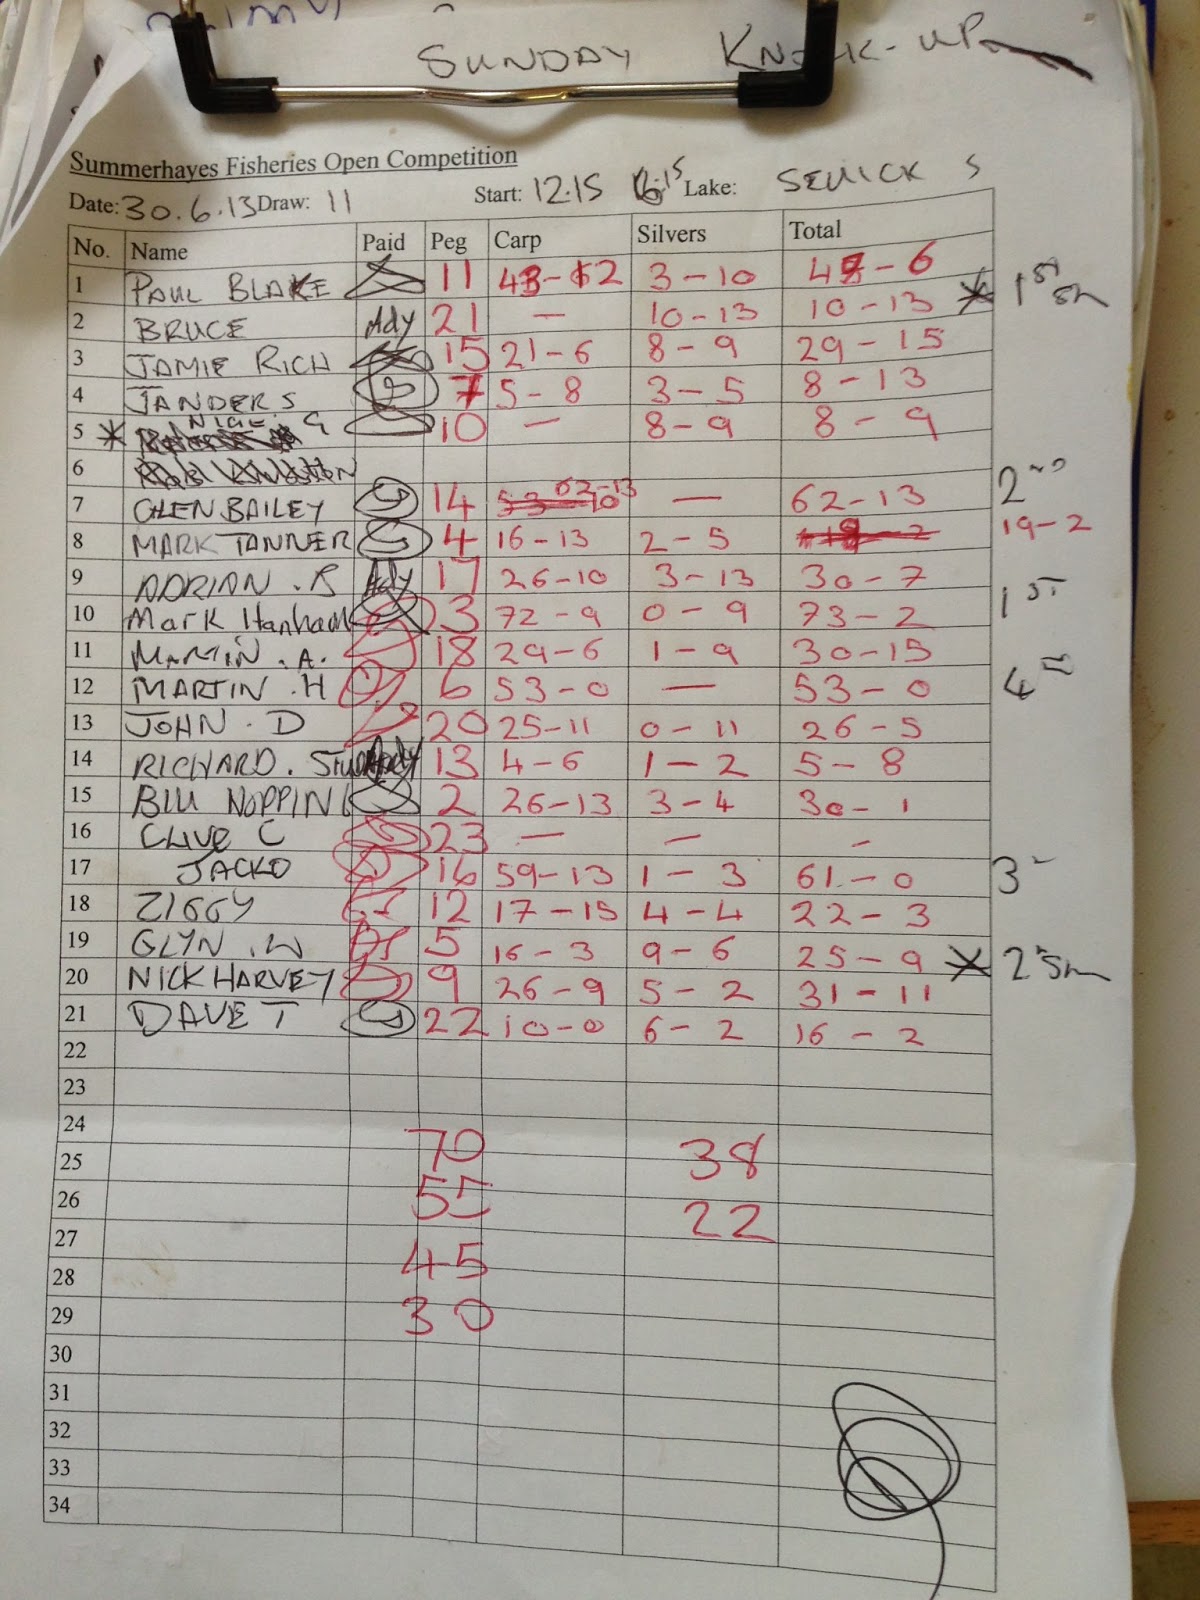 SUNDAY KNOCK-UP
Summerhayes Fisheries Open Competition
Date: 30.6.13 Draw: 11 Start: 12.15 Lake: SELLICK S
No. Name Paid Peg Carp Silvers Total
1 PAUL BLAKE 11 3-10
2 BRUCE Ady 21 — 10-13 10-13 1ST
3 JAMIE RICH 15 21-6 8-9 29-15
4 JANDERS 7 5-8 3-5 8-13
5 10 — 8-9 8-9
6
7 GLEN BAILEY 14 62-13 — 62-13 2ND
8 MARK TANNER 4 16-13 2-5 19-2
9 ADRIAN . R Ady 17 26-10 3-13 30-7
10 Mark Hanham 3 72-9 0-9 73-2 1ST
11 MARTIN . A. 18 29-6 1-9 30-15
12 MARTIN . H 6 53-0 — 53-0 4TH
13 JOHN . D 20 25-11 0-11 26-5
14 RICHARD . 13 4-6 1-2 5-8
15 BILL HOPPING 2 26-13 3-4 30-1
16 CLIVE C 23 — — —
17 JACKO 16 59-13 1-3 61-0 3
18 ZIGGY 12 17-15 4-4 22-3
19 GLYN . W 5 16-3 9-6 25-9 2
20 NICK HARVEY 9 26-9 5-2 31-11
21 DAVE T 22 10-0 6-2 16-2
22
23
24
25 70 38
26 55 22
27
28 45
29 30
30
31
32
33
34